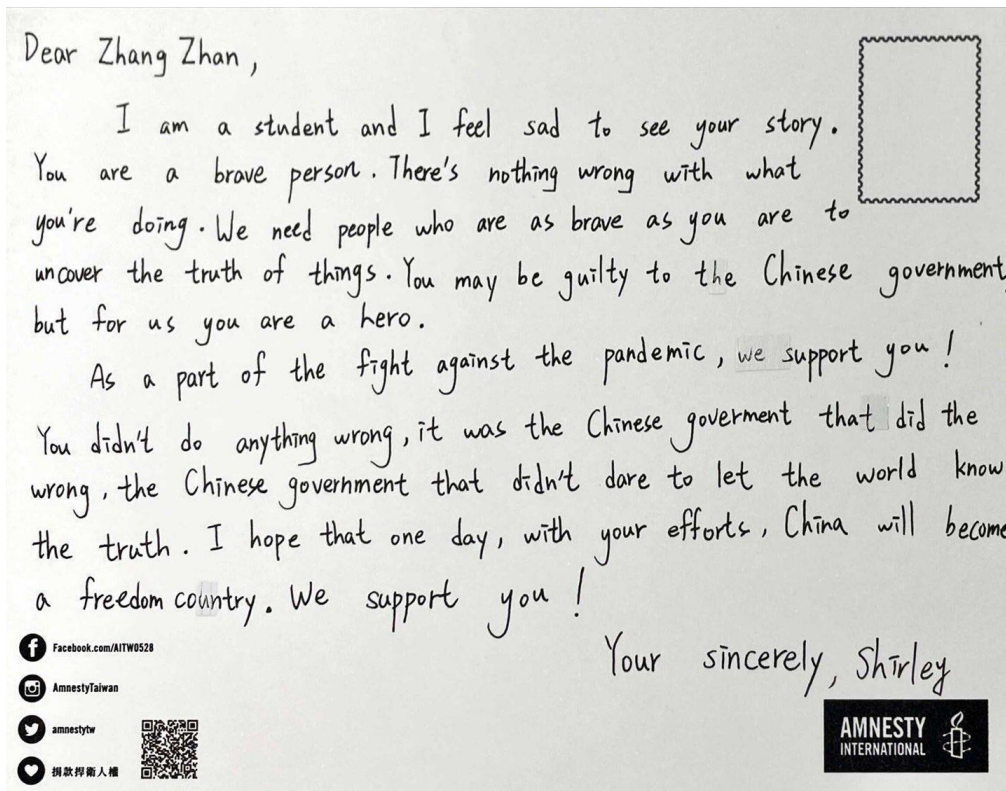 Dear Zhang Zhan,
I am a student and I feel sad to see your story.
You are a brave person. There's nothing wrong with what
you're doing. We need people who are as brave as you are to
uncover the truth of things. You may be guilty to the Chinese government,
but for us you are a hero.
As a part of the fight against the pandemic, we support you!
You didn't do anything wrong, it was the Chinese goverment that did the
wrong, the Chinese government that didn't dare to let the world know
the truth. I hope that one day, with your efforts, China will become
a freedom country. We support you!
Your sincerely, Shirley
Facebook.com/AITW0528
AmnestyTaiwan
amnestytw
捐款捍衛人權
AMNESTY
INTERNATIONAL